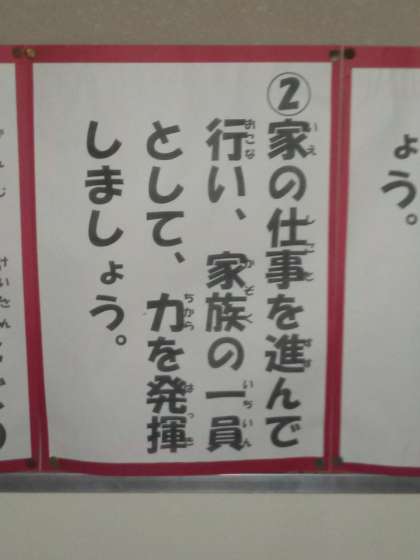 ょう。
②家の仕事を進んで
行い、家族の一員
として、力を発揮
しましょう。